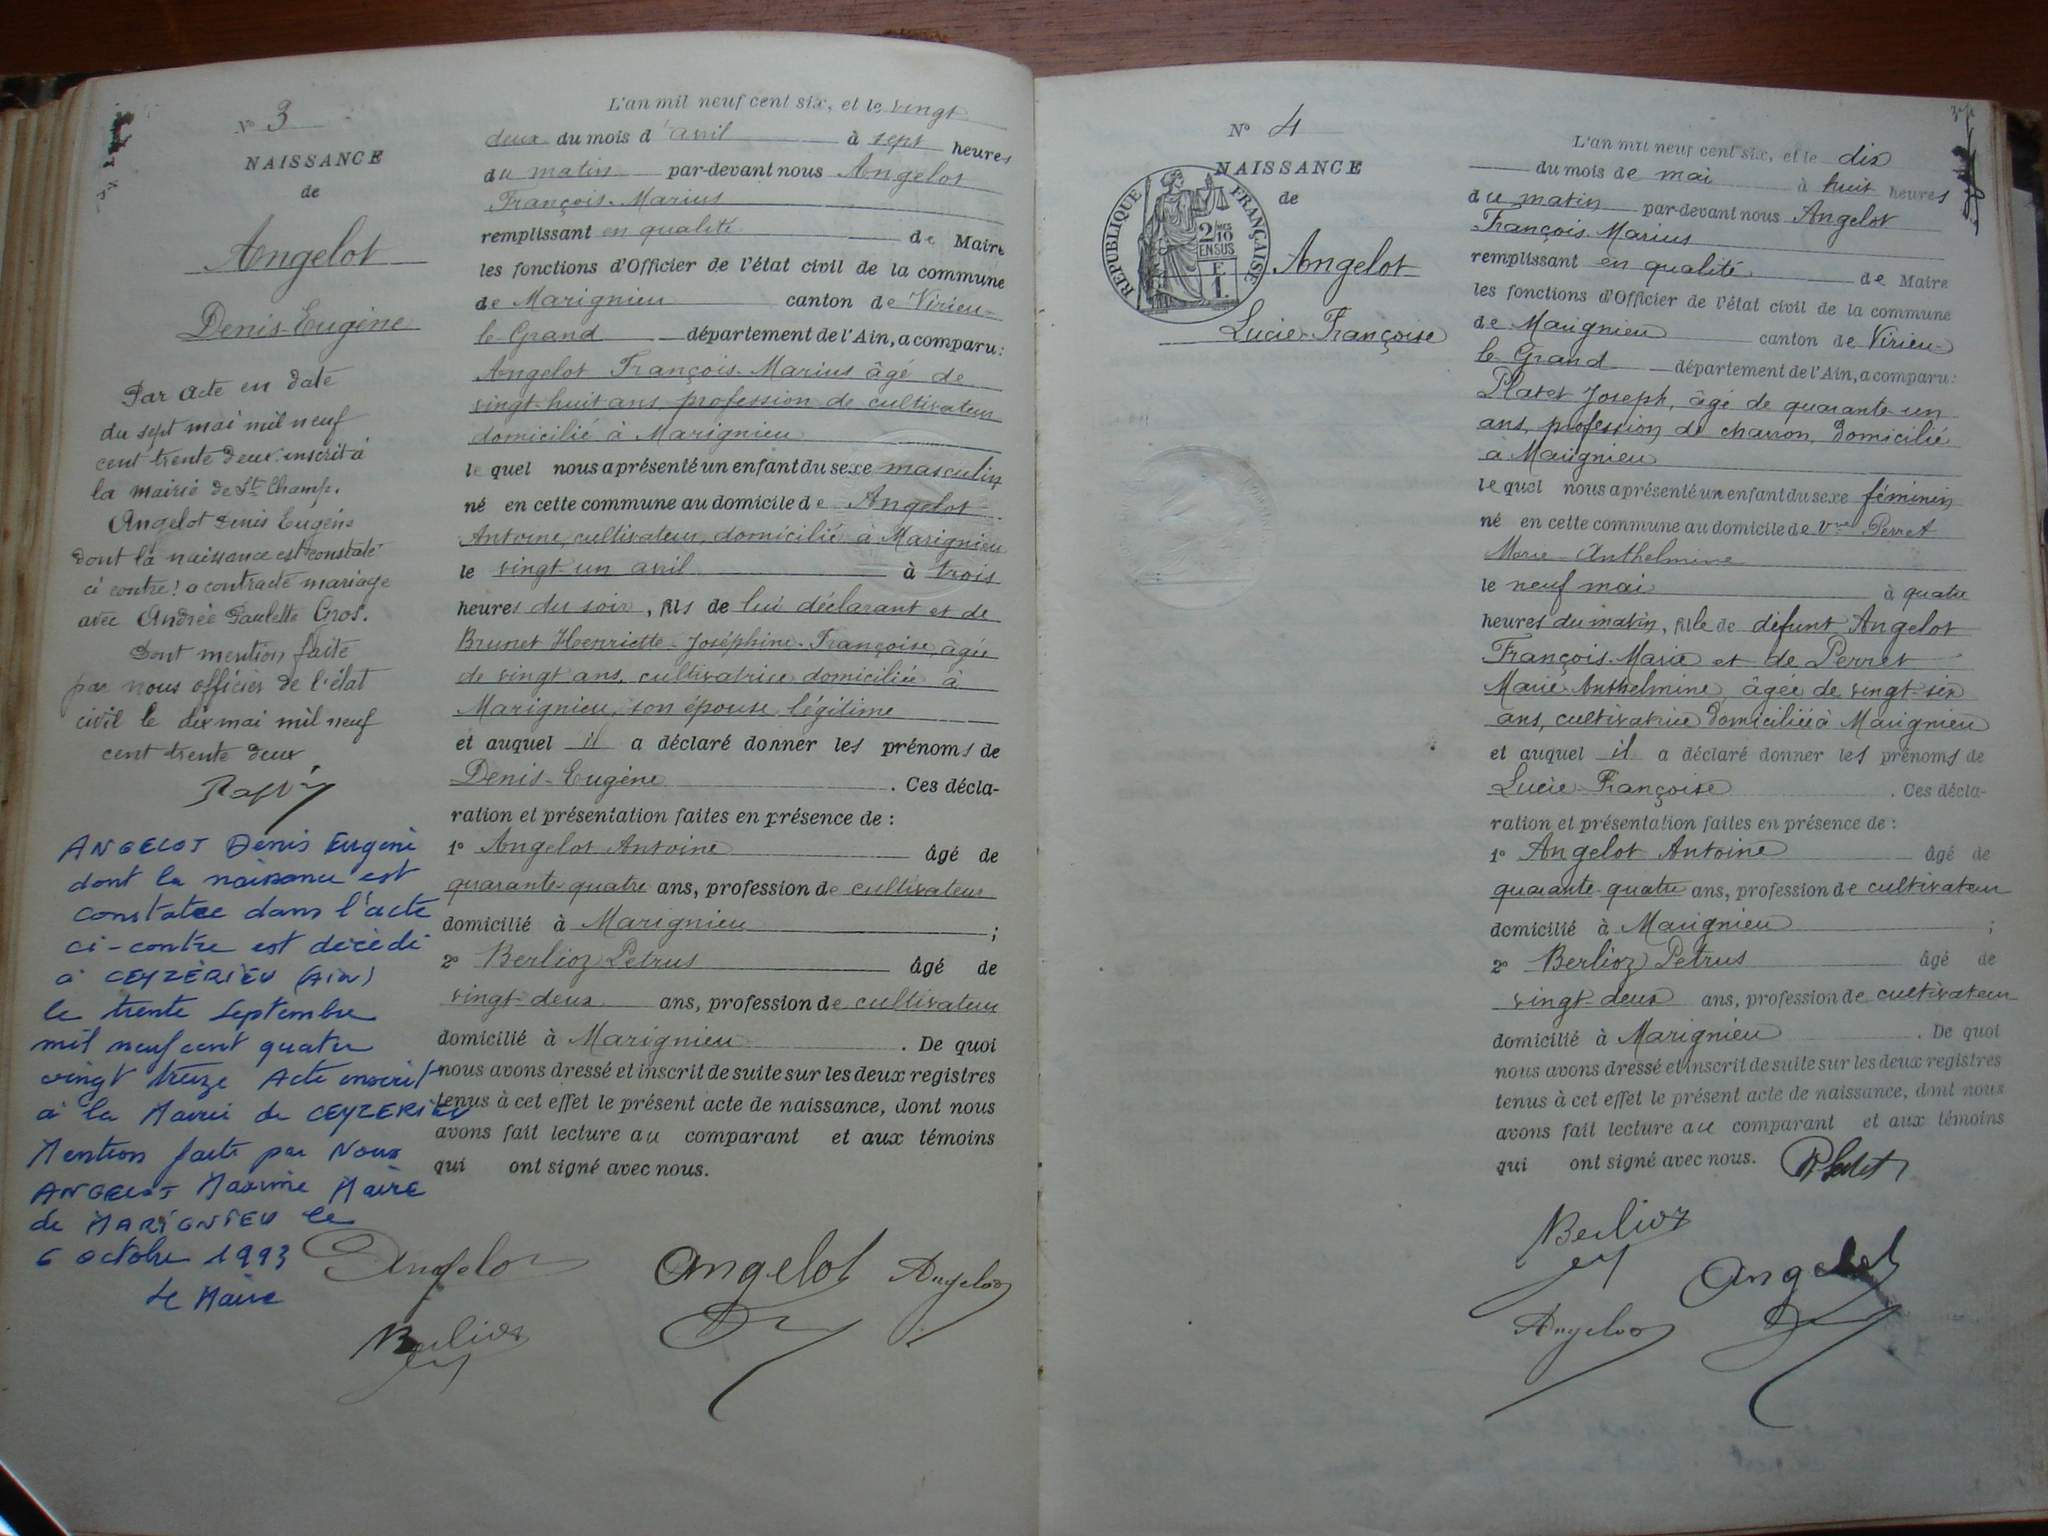 N° 3
NAISSANCE
de
Angelot
Denis-Eugène
Par acte en date
du sept mai mil neuf
cent trente deux inscrit à
la mairie de St Champ.
Angelot Denis Eugène
dont la naissance est constaté
ci contre ! a contracté mariage
avec Andrée Paulette Gros.
Dont mention faite
par nous officier de l'état
civil le dix mai mil neuf
cent trente deux
ANGELOT Denis Eugène
dont la naissance est
constatée dans l'acte
ci-contre est décédé
à CEYZÉRIEU (Ain)
le trente Septembre
mil neuf cent quatre
vingt treize Acte inscrit
à la Mairie de CEYZERIEU
Mention faite par Nous
ANGELOT Maxime Maire
de MARIGNIEU le
6 octobre 1993
Le Maire
L'an mil neuf cent six, et le vingt
deux du mois d'avril à sept heures
du matin par-devant nous Angelot
François-Marius
remplissant en qualité de Maire
les fonctions d'Officier de l'état civil de la commune
de Marignieu canton de Virieu-
le Grand département de l'Ain, a comparu :
Angelot François-Marius âgé de
vingt-huit ans, profession de cultivateur
domicilié à Marignieu
le quel nous a présenté un enfant du sexe masculin
né en cette commune au domicile de Angelot
Antoine, cultivateur, domicilié à Marignieu
le vingt-un avril à trois
heures du soir, fils de lui déclarant et de
Brunet Henriette-Joséphine-Françoise, âgée
de vingt ans, cultivatrice domiciliée à
Marignieu, son épouse légitime
et auquel il a déclaré donner les prénoms de
Denis-Eugène . Ces décla-
ration et présentation faites en présence de :
1° Angelot Antoine âgé de
quarante-quatre ans, profession de cultivateur
domicilié à Marignieu ;
2° Berlioz Petrus âgé de
vingt-deux ans, profession de cultivateur
domicilié à Marignieu . De quoi
nous avons dressé et inscrit de suite sur les deux registres
tenus à cet effet le présent acte de naissance, dont nous
avons fait lecture au comparant et aux témoins
qui ont signé avec nous.
Angelot
Angelot
Angelot
Berlioz
N° 4
NAISSANCE
de
RÉPUBLIQUE FRANÇAISE
2 /10
EN SUS
F
1.
Angelot
Lucie-Françoise
L'an mil neuf cent six, et le dix
du mois de mai à huit heures
du matin par-devant nous Angelot
François-Marius
remplissant en qualité de Maire
les fonctions d'Officier de l'état civil de la commune
de Marignieu canton de Virieu-
le Grand département de l'Ain, a comparu :
Platet Joseph, âgé de quarante-un
ans, profession de charron, domicilié
à Marignieu
le quel nous a présenté un enfant du sexe féminin
né en cette commune au domicile de Vve Perret
Marie-Anthelmine
le neuf mai à quatre
heures du matin, fille de défunt Angelot
François-Marie et de Perret
Marie-Anthelmine, âgée de vingt-six
ans, cultivatrice domiciliée à Marignieu
et auquel il a déclaré donner les prénoms de
Lucie-Françoise . Ces décla-
ration et présentation faites en présence de :
1° Angelot Antoine âgé de
quarante-quatre ans, profession de cultivateur
domicilié à Marignieu ;
2° Berlioz Petrus âgé de
vingt-deux ans, profession de cultivateur
domicilié à Marignieu . De quoi
nous avons dressé et inscrit de suite sur les deux registres
tenus à cet effet le présent acte de naissance, dont nous
avons fait lecture au comparant et aux témoins
qui ont signé avec nous. Platet
Berlioz
Angelot
Angelot